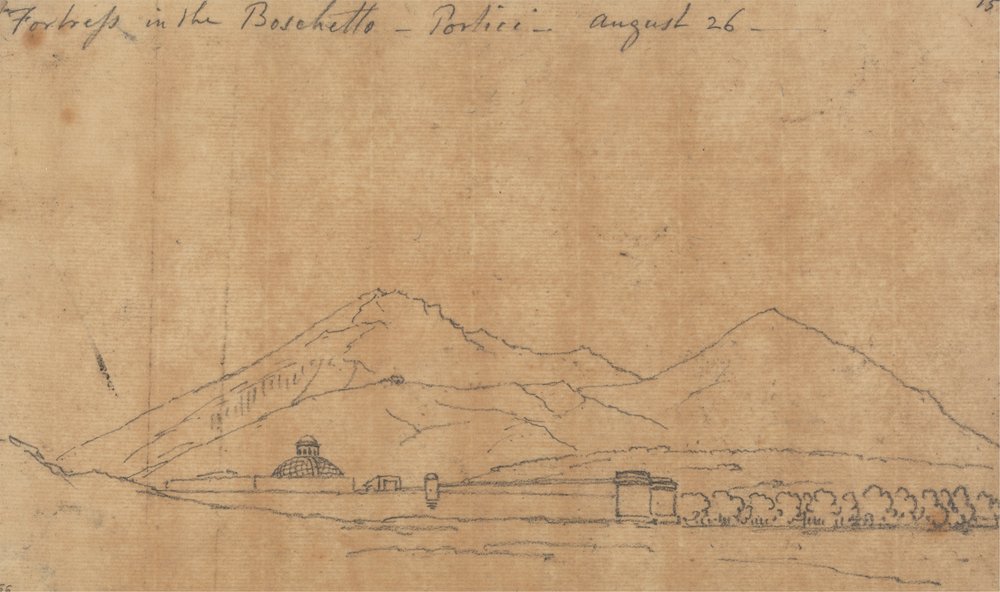 Fortress in the Boschetto - Portici - august 26 -
15
66